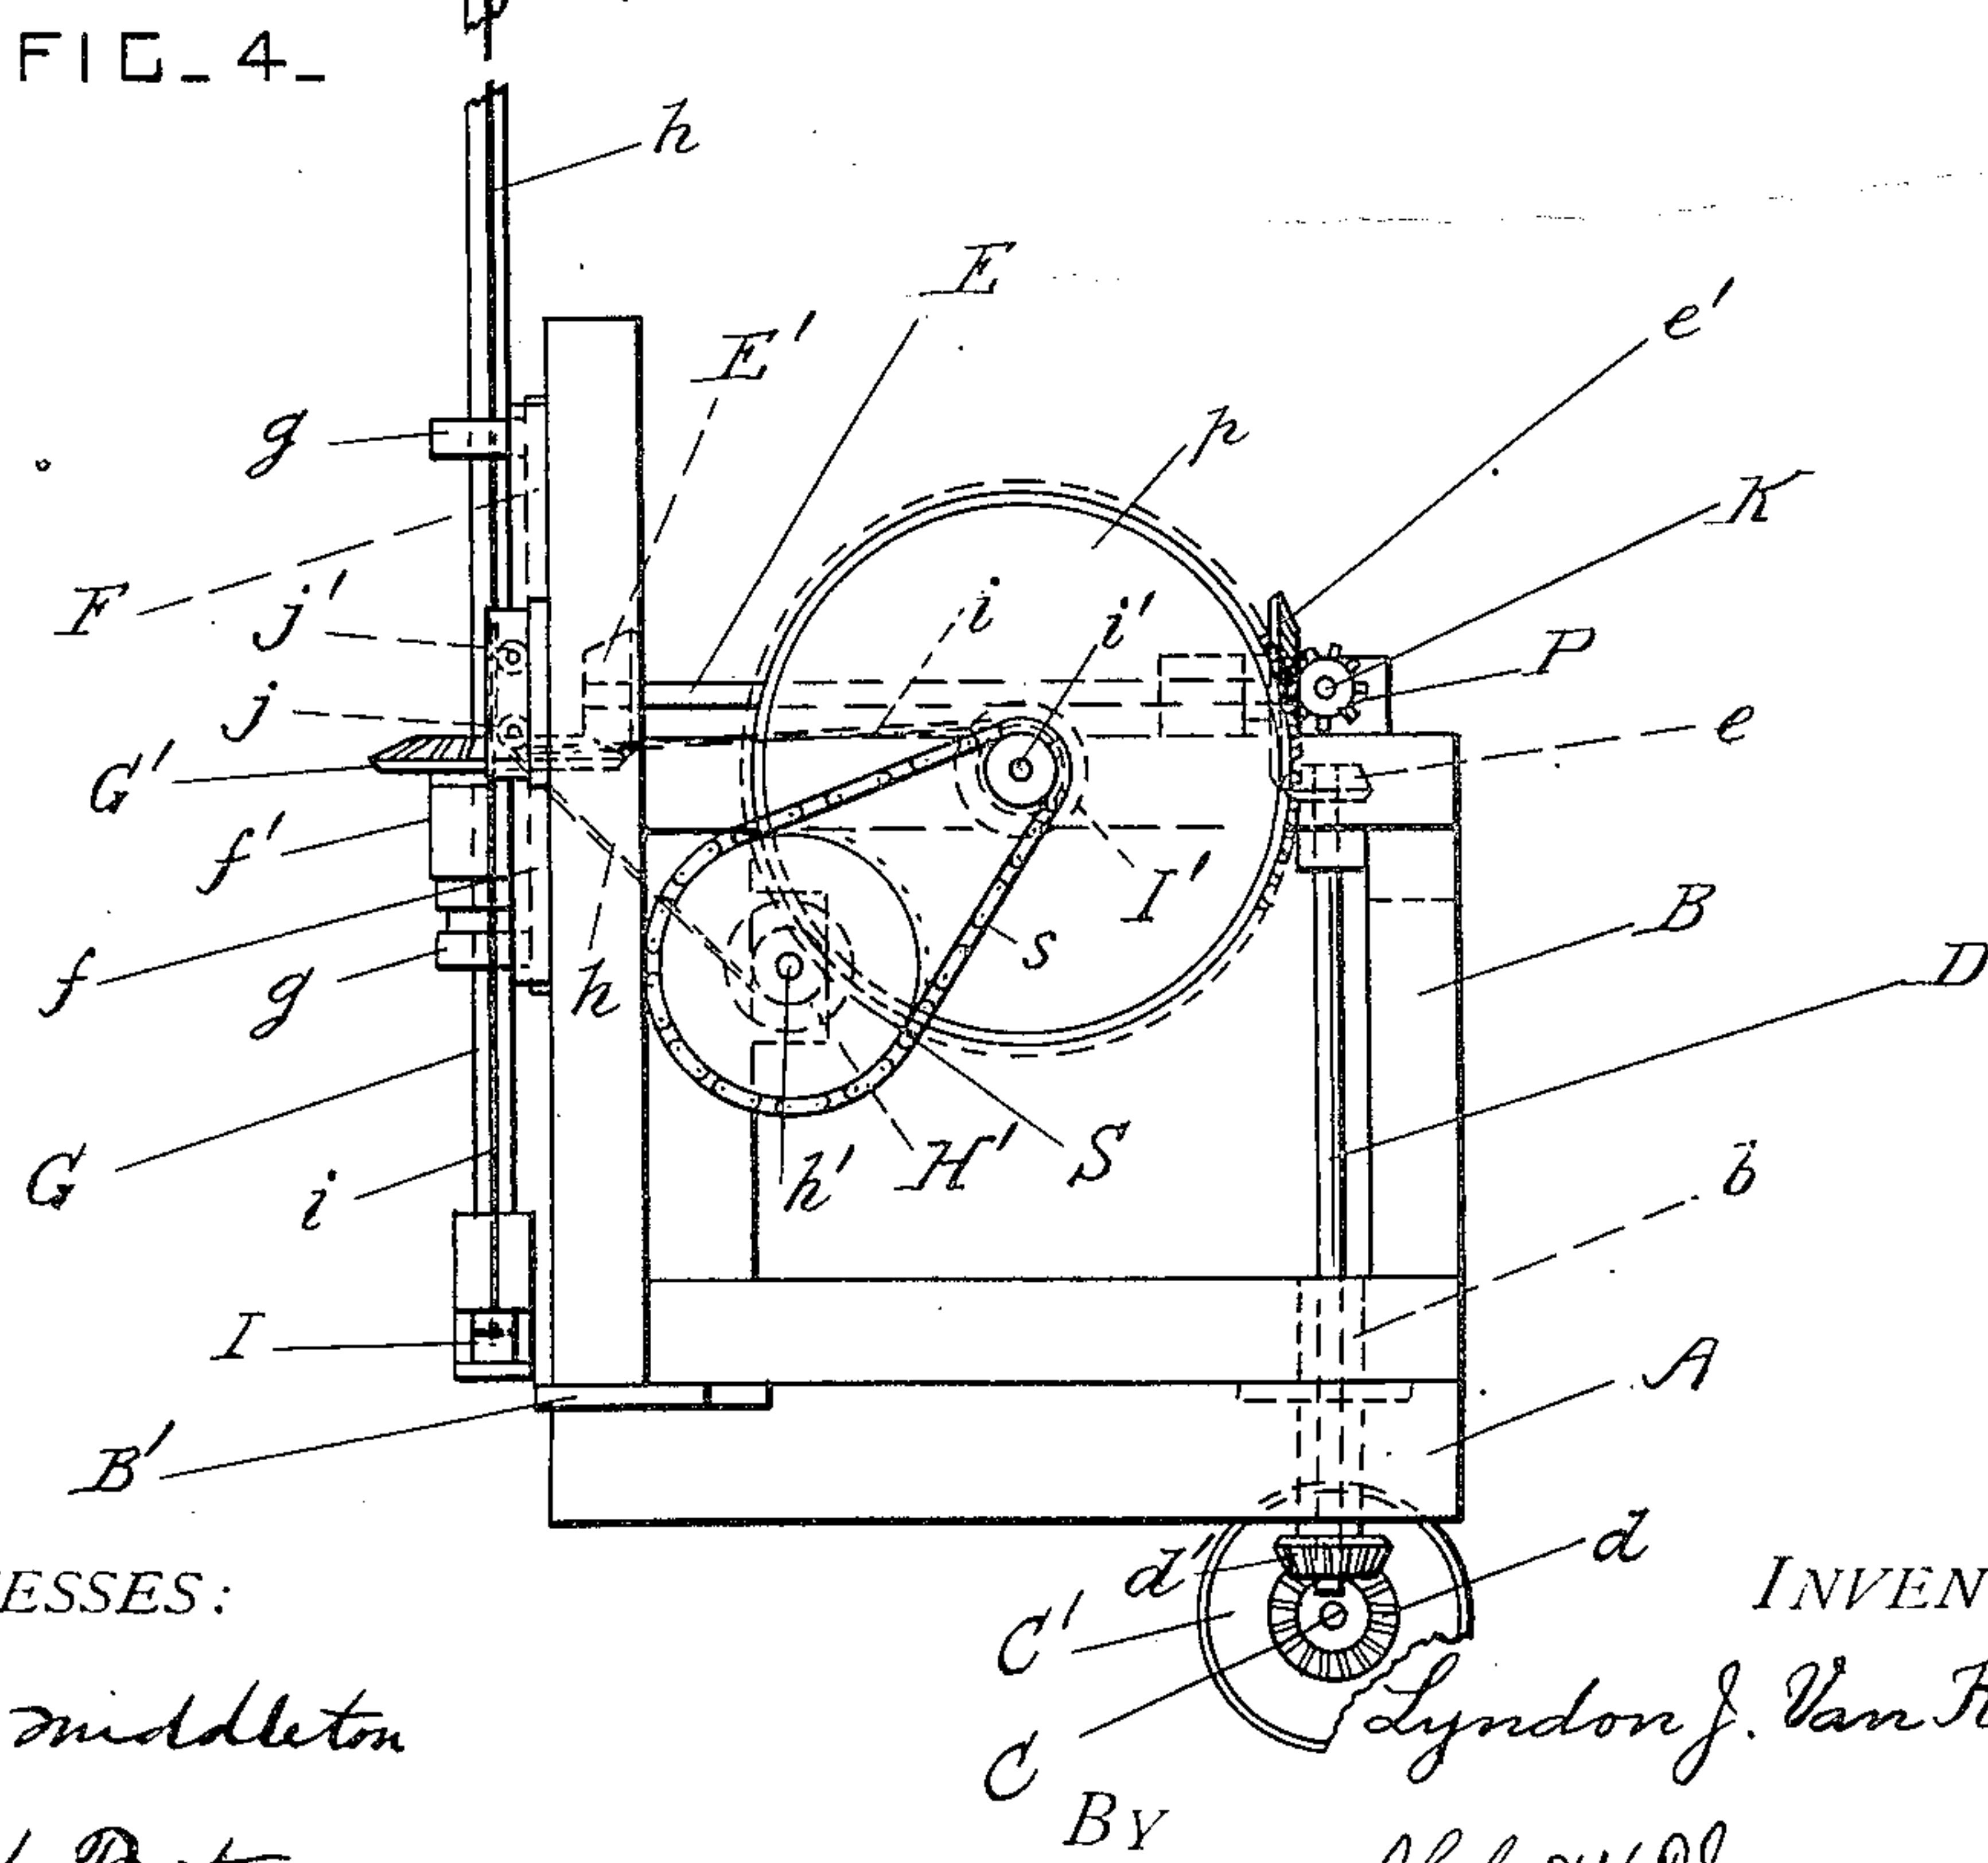 FIG_4_
h
E
E'
e'
g
p
K
F
j'
i
i'
P
j
e
G'
f'
I'
B
s
D
f
g
h
G
i
h'
H'
S
b
I
A
B'
d'
d
ESSES:
C'
INVEN
middleton
Lyndon J. Van
C
BY